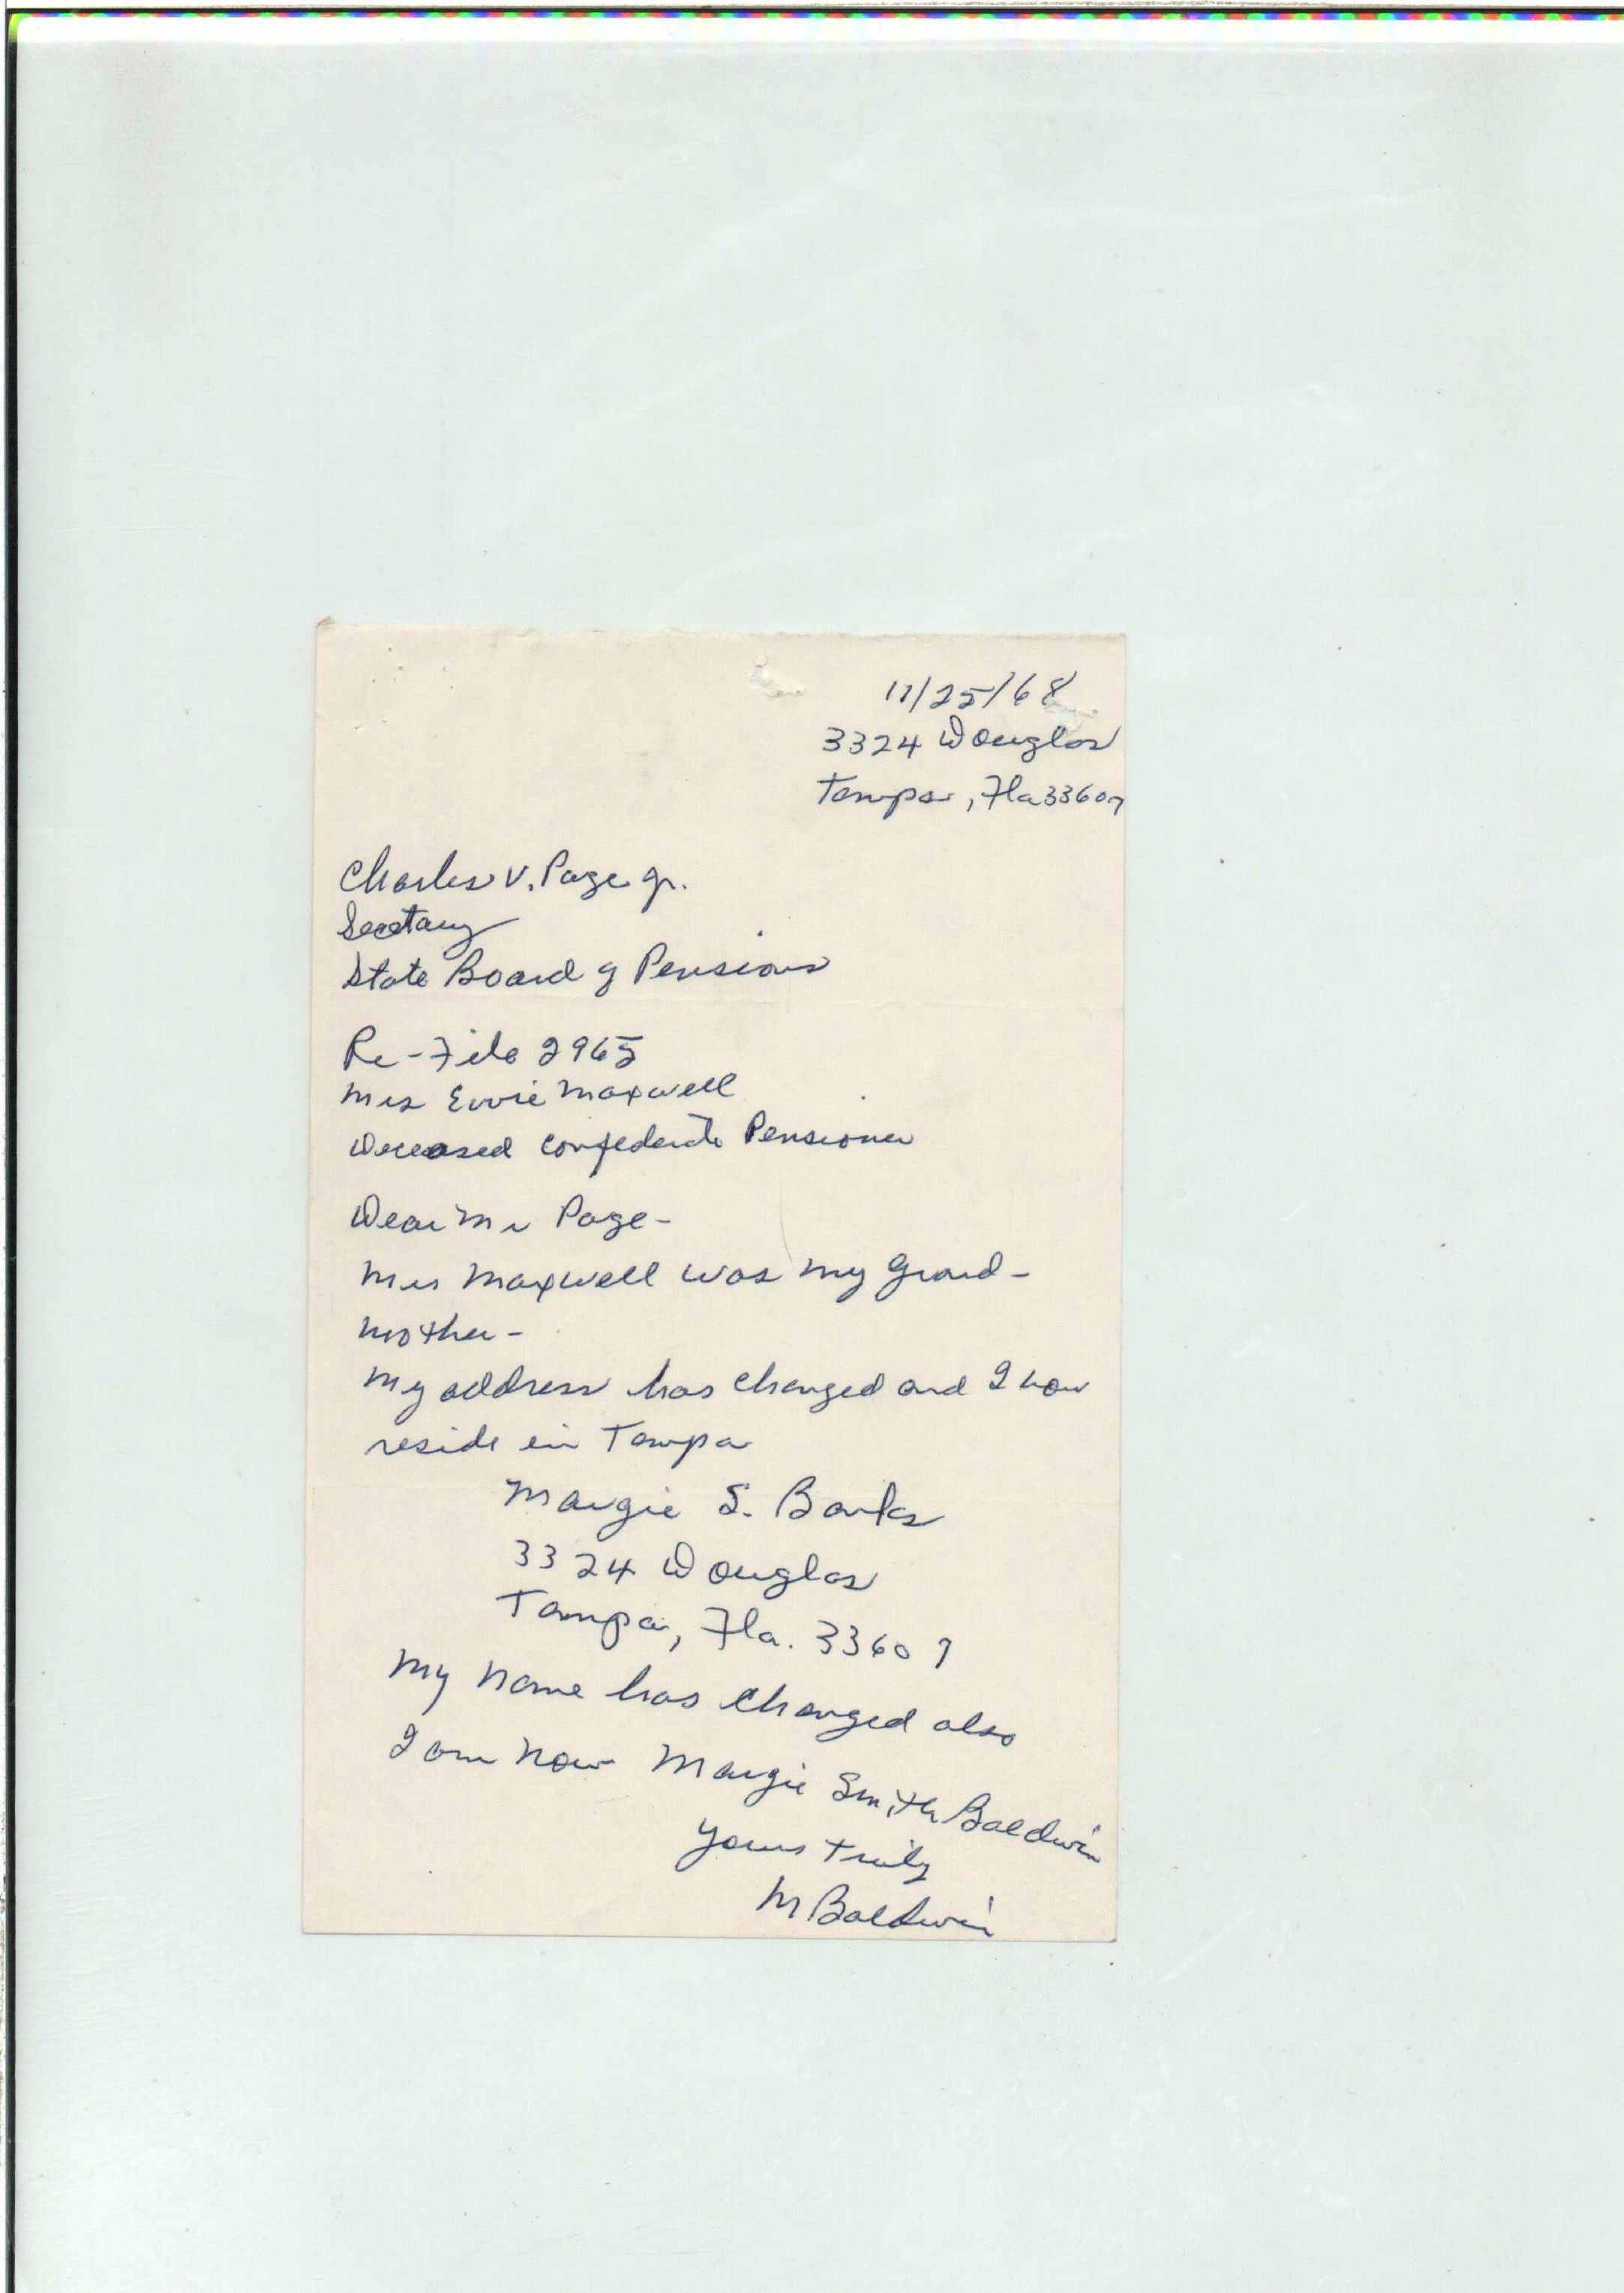 11/25/68
3324 Douglas
Tampa, Fla 33607
Charles V. Page Jr.
Secetary
State Board of Pensions
Re-File 2965
Mrs Evvie Maxwell
Deceased Confederate Pensioner
Dear Mr Page-
Mrs Maxwell was my Grand-
mother-
My address has changed and I now
reside in Tampa
Margie S. Banks
3324 Douglas
Tampa, Fla. 33607
My name has changed also
I am now Margie Smith Baldwin
Yours truly
M Baldwin